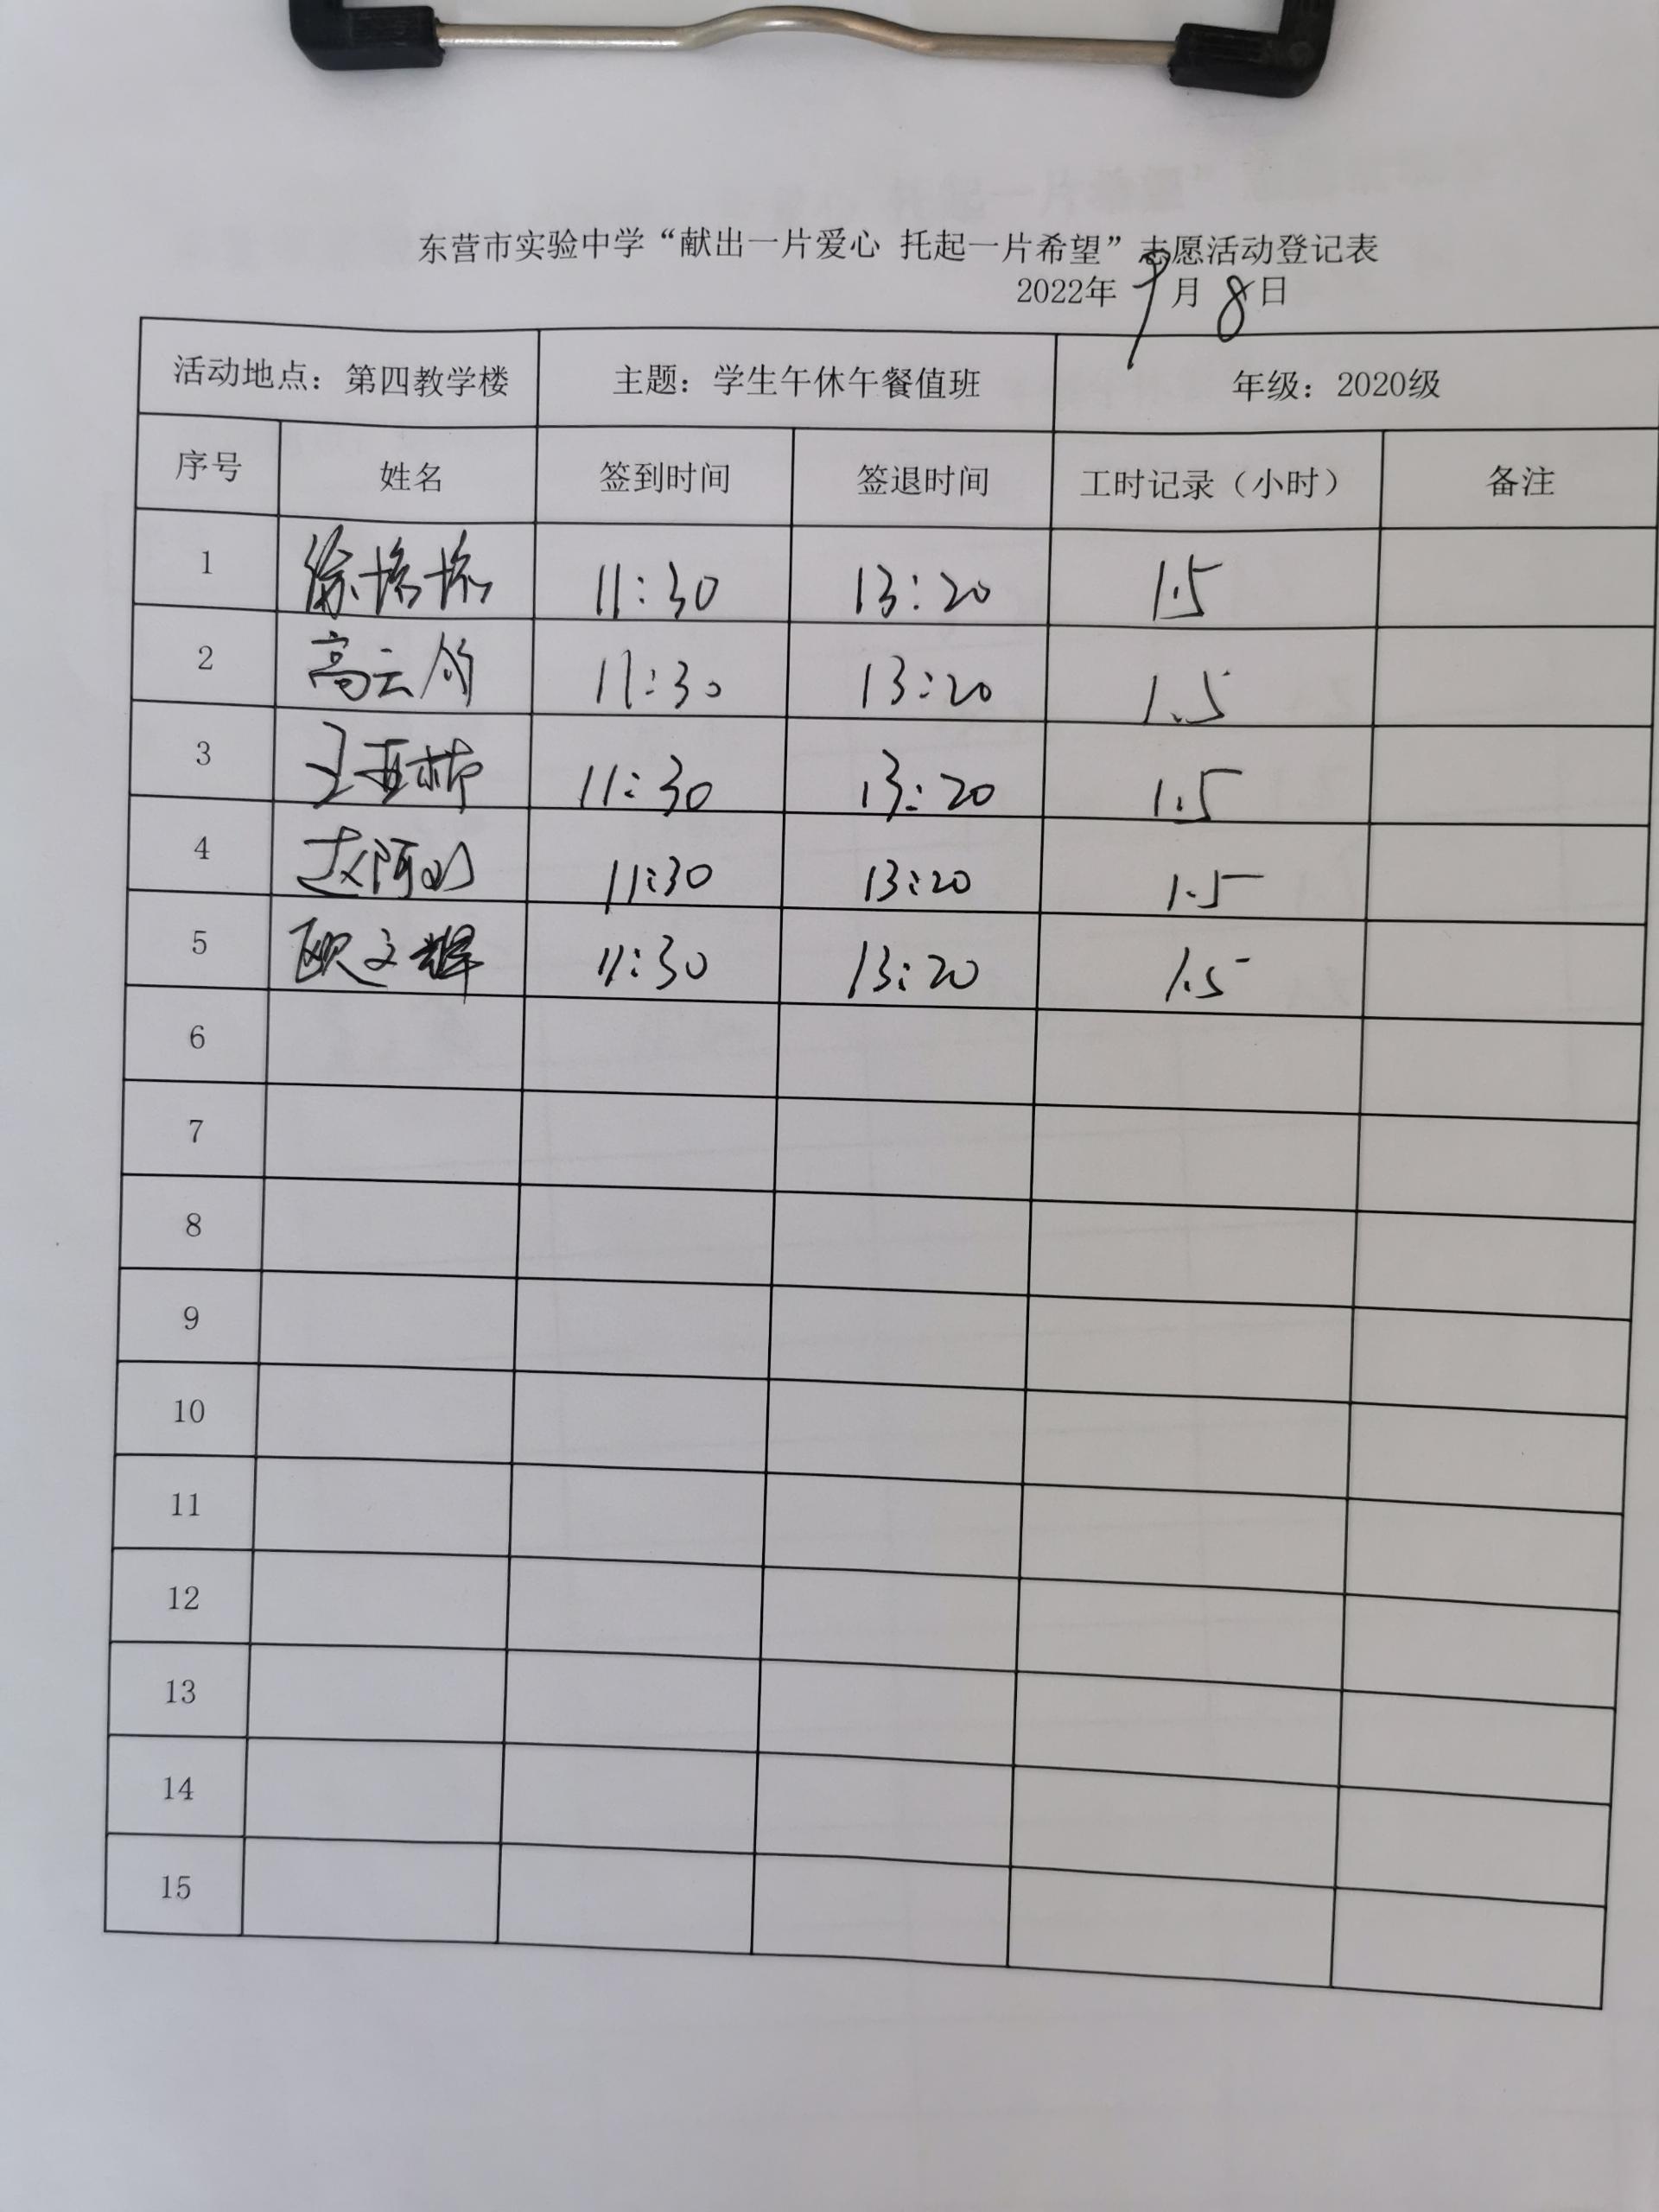 东营市实验中学“献出一片爱心 托起一片希望”志愿活动登记表
2022年 9月 8日
活动地点：第四教学楼 主题：学生午休午餐值班 年级：2020级
序号 姓名 签到时间 签退时间 工时记录（小时） 备注
1 徐 11:30 13:20 1.5
2 高云 11:30 13:20 1.5
3 王亚 11:30 13:20 1.5
4 赵阿 11:30 13:20 1.5
5 欧文辉 11:30 13:20 1.5
6
7
8
9
10
11
12
13
14
15